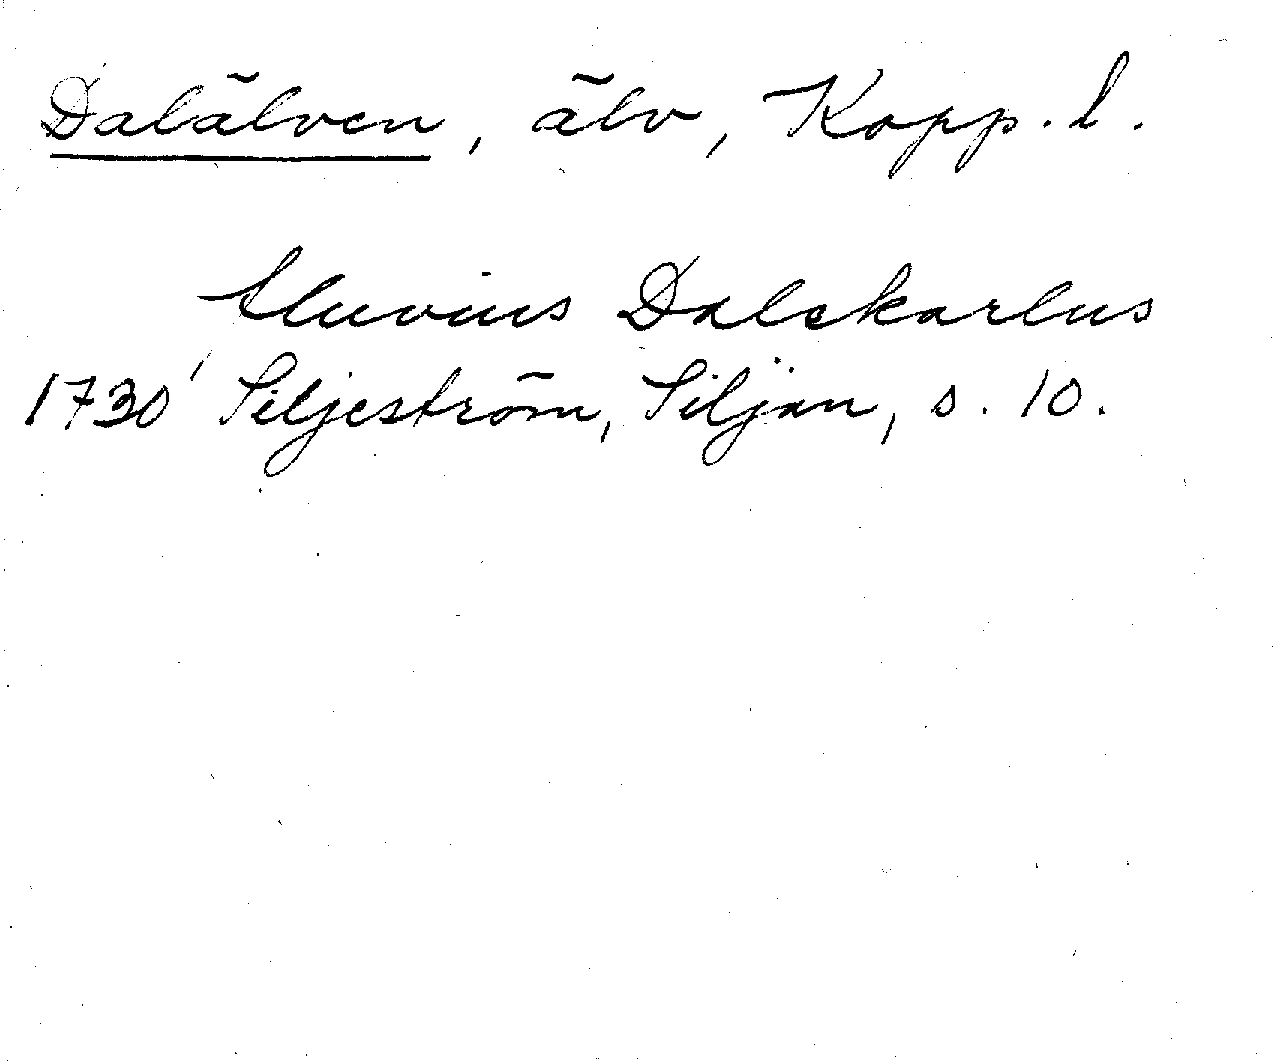 Dalälven, älv, Kopp. l.
fluvius Dalekarlus
1730 Siljeström, Siljan, s. 10.